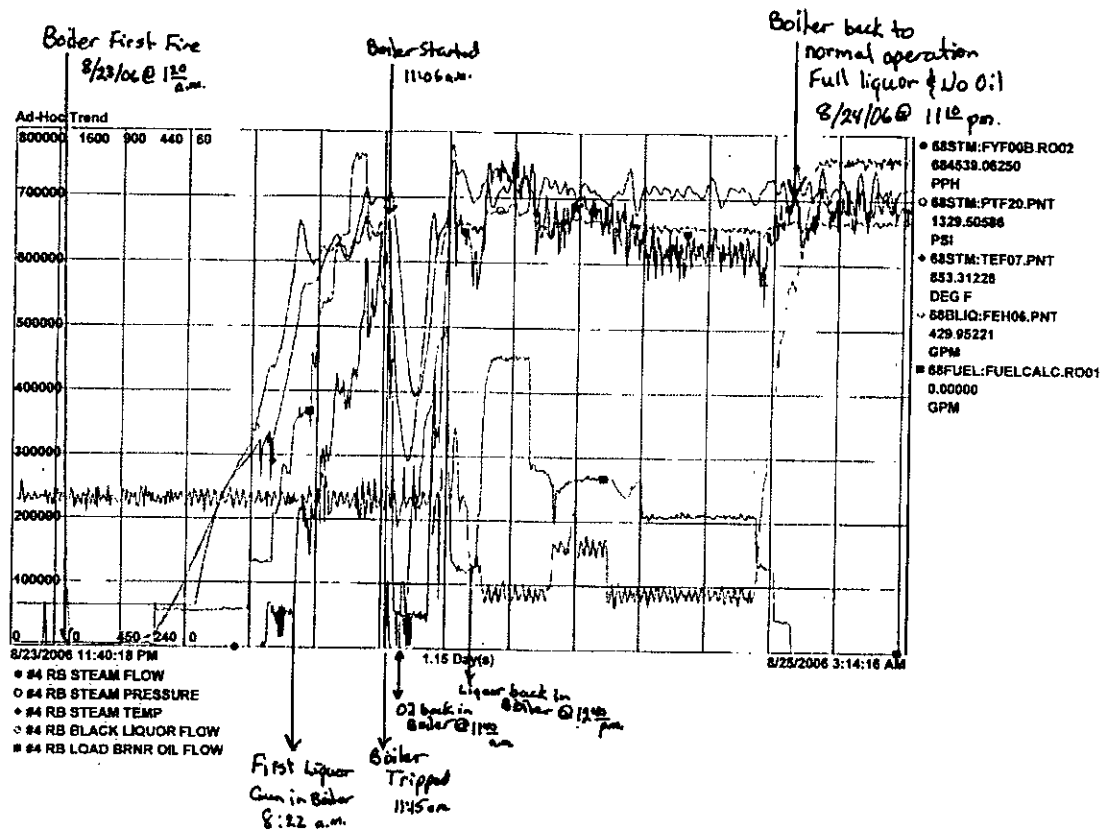 Boiler First Fire
8/23/06 @ 1 20
a.m.
Boiler Started
11:06 a.m.
Boiler back to
normal operation
Full liquor & No Oil
8/24/06 @ 11 10 pm.
Ad-Hoc Trend
800000 1600 900 440 60
700000
600000
500000
400000
300000
200000
100000
0 0 450 240 0
8/23/2006 11:40:18 PM
1.15 Day(s)
8/25/2006 3:14:16 AM
68STM:FYF00B.RO02
684539.06250
PPH
68STM:PTF20.PNT
1329.50586
PSI
68STM:TEF07.PNT
853.31226
DEG F
68BLIQ:FEH06.PNT
429.95221
GPM
68FUEL:FUELCALC.RO01
0.00000
GPM
#4 RB STEAM FLOW
#4 RB STEAM PRESSURE
#4 RB STEAM TEMP
#4 RB BLACK LIQUOR FLOW
#4 RB LOAD BRNR OIL FLOW
First Liquor
Gun in Boiler
8:22 a.m.
Boiler
Tripped
11:45 am
back in
Boiler @
am
Liquor back in
Boiler @ 12 40
pm.